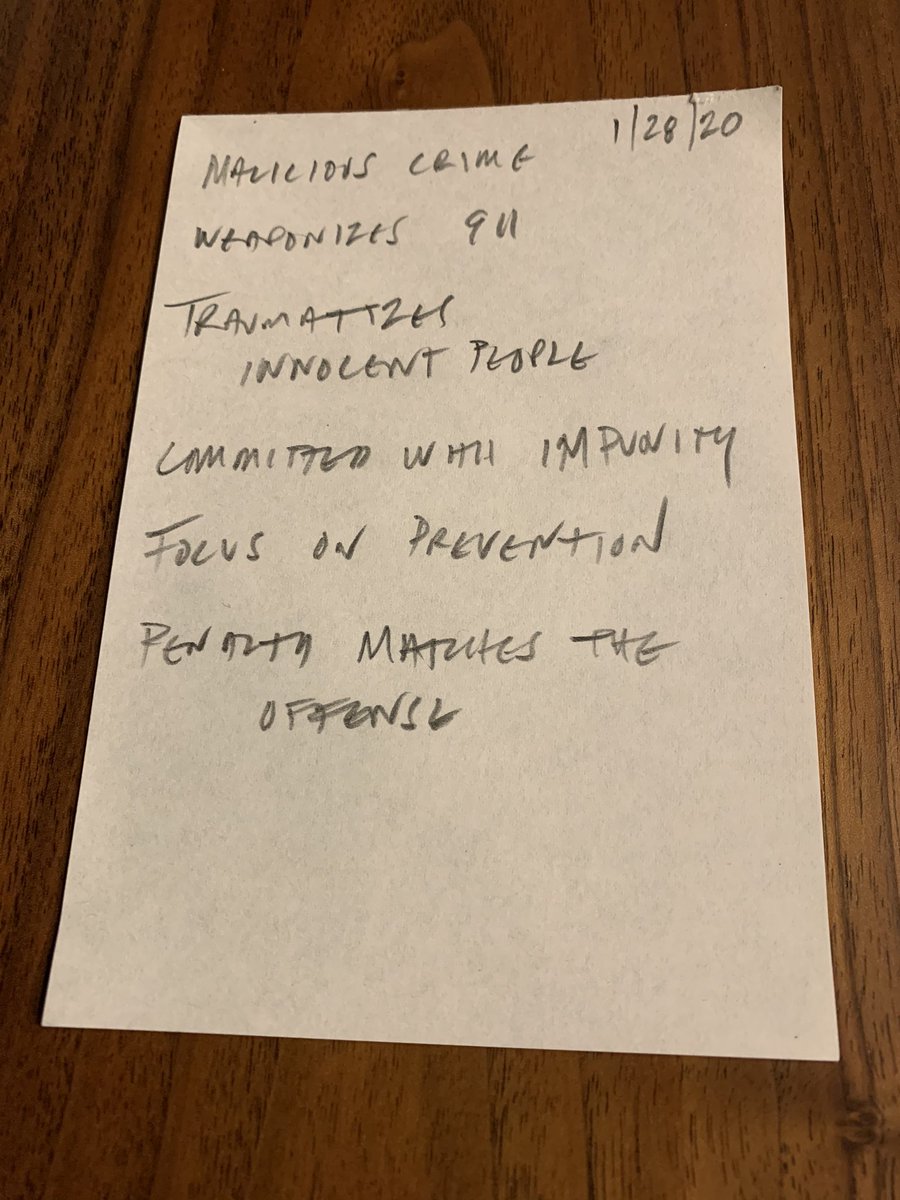 1/28/20
MALICIOUS CRIME
WEAPONIZES 911
TRAUMATIZES
INNOCENT PEOPLE
COMMITTED WITH IMPUNITY
FOCUS ON PREVENTION
PENALTY MATCHES THE
OFFENSE